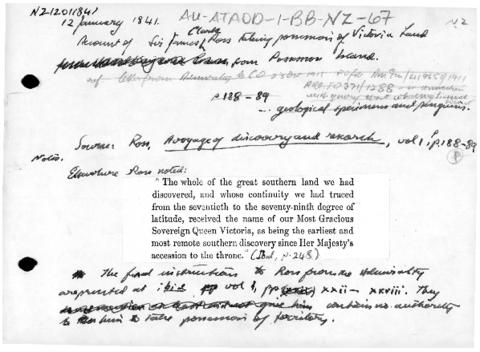 NZ12011841
AU-ATADD-1-BB-NZ-67
NZ
12 January 1841.
Account of Sir James Clark Ross taking possession of Victoria Land
from Possession Island.
p.188-89
... geological specimens and penguins.
Source: Ross, A voyage of discovery and research, vol 1, p.188-89
Notes.
Elsewhere Ross noted:
"The whole of the great southern land we had
discovered, and whose continuity we had traced
from the seventieth to the seventy-ninth degree of
latitude, received the name of our Most Gracious
Sovereign Queen Victoria, as being the earliest and
most remote southern discovery since Her Majesty's
accession to the throne." (Ibid, p.248)
The final instructions to Ross from the Admiralty
are printed at ibid vol 1, pp xxii - xxviii. They
contain no authority
to Ross him to take possession of territory.